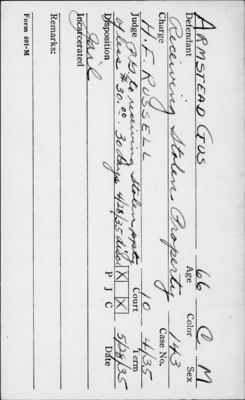 ARMSTEAD GUS 66 C M
Defendant Age Color Sex
Receiving Stolen Property 143
Charge Case No.
H. F. RUSSELL 10 4/35
Judge Court Term
PG to receiving stolen ppty
of less $30.00 30 days 4/28/35 disc X X 5/28/35
Disposition P J C Date
Jail
Incarcerated
Remarks:
Form 401-M